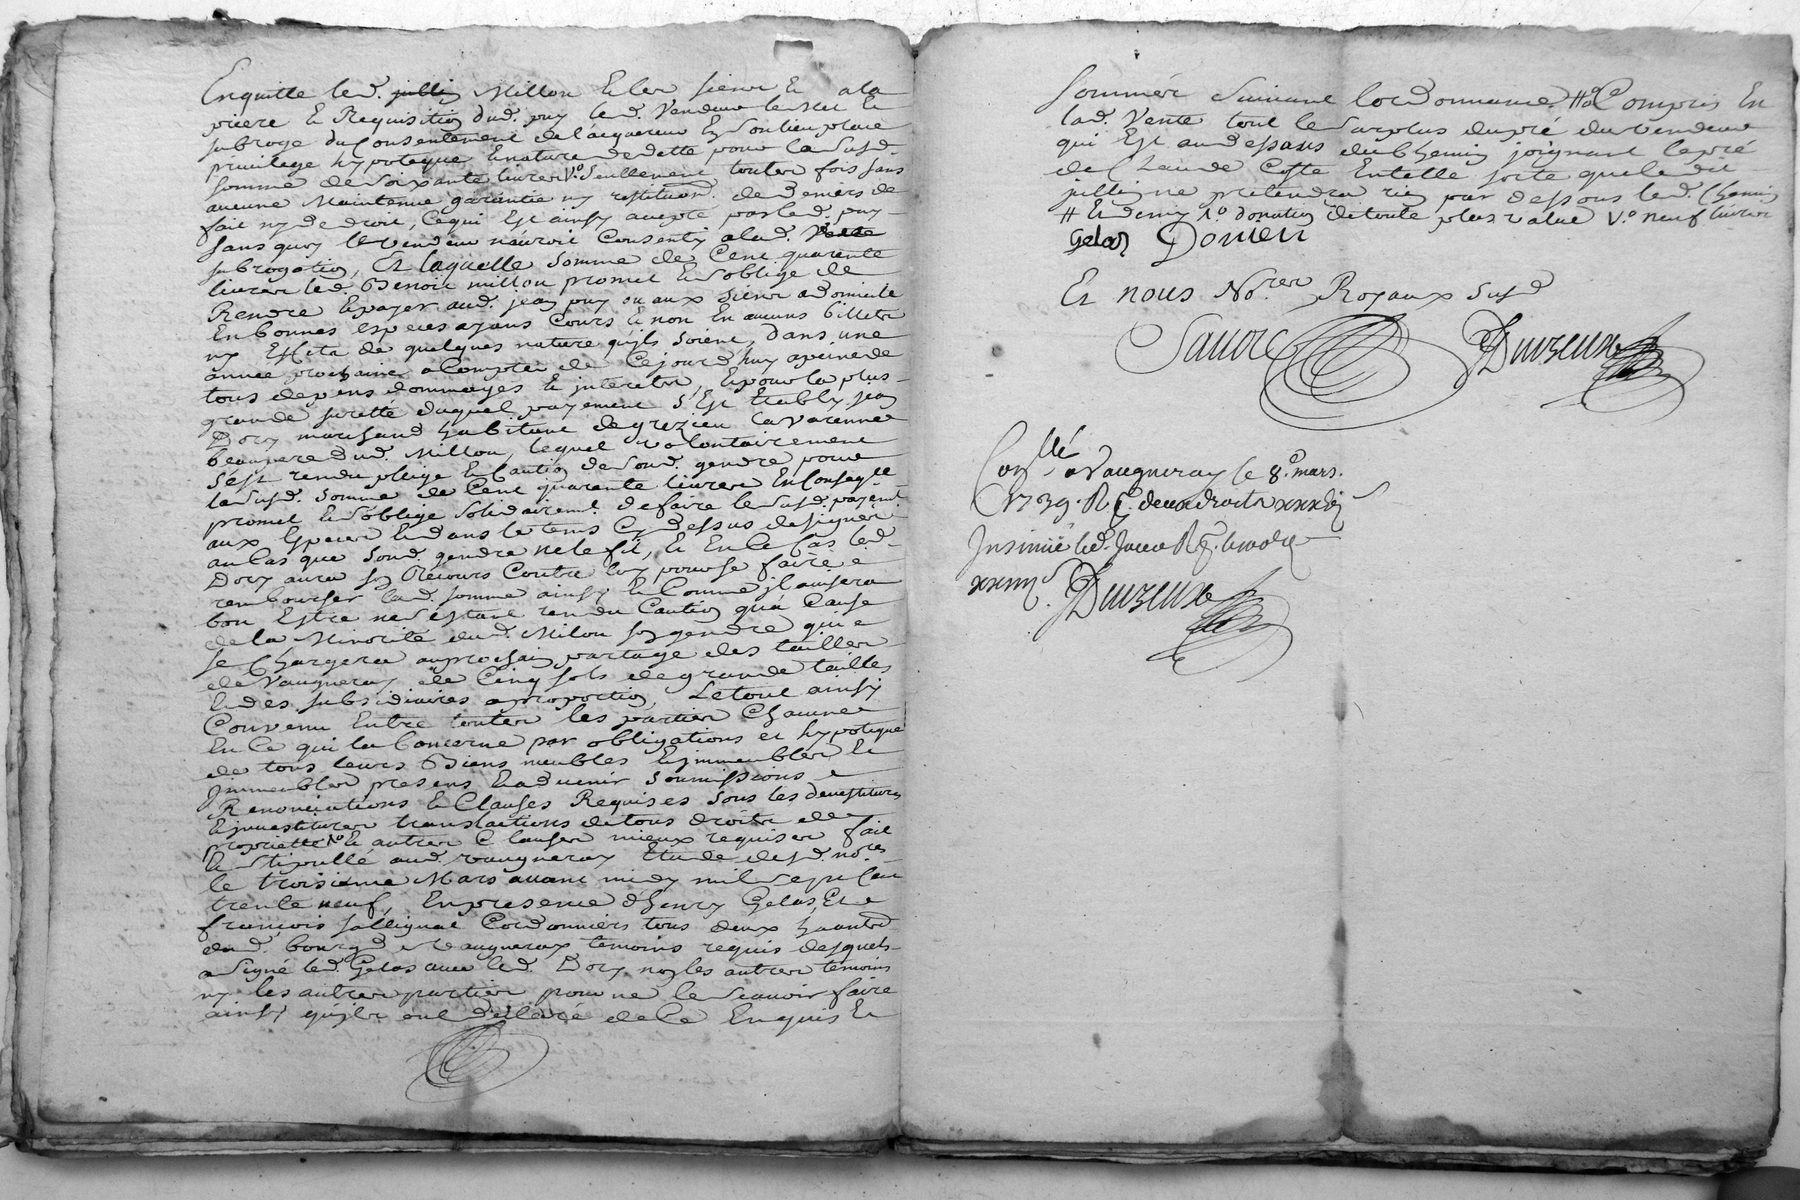 Enquitte led. jullin Millon Et les siens Et a la
priere Et Requisition dud. puy led. Vendeur le met Et
subroge du Consentement de l'acquereur En son lieu place
privilege hypoteque Et nature de dette pour la susd.
somme de soixante livres Vo. seullement toutes fois sans
aucune Maintenue garantie ny restitution de deniers de
fait ny de droit, Ce qui Est ainsy accepté par led. puy
sans quoy le vendeur n'auroit Consenty a lad. Vente
subrogation, Et laquelle somme de Cent quarante
livres led. Benoit millon promet Et s'oblige de
Rendre Et payer aud. jean puy ou aux siens a domicile
En bonnes especes ayans Cours Et non En aucuns billets
ny Effets de quelques nature qu'ils soient, dans une
année prochaine a Compter de Ce jourd'huy a peine de
tous depens dommages Et interets, Et pour la plus
grande suretté duquel payement s'Est Etably jean
Dory marchand habitant de grezieu la varenne
beaupere dud. Millon, lequel volontairement
s'est rendu pleige Et Caution de sond. gendre pour
la susd. somme de Cent quarante livres En Conseq.lle
promet Et s'oblige solidairemt. de faire le susd. payemt.
aux Especes Et dans le tems Cy dessus designés
au Cas que sond. gendre ne le fit, Et En Ce Cas led.
Dory aura son Recours Contre luy pour se faire
rembourser lad. somme ainsy Et Comme jl avisera
bon Estre ne s'estant rendu Caution qu'a Cause
de la Minorité dud. Milon son gendre qui
se Chargera au prochain partage des tailles
de Vaugneray de Cinq sols de grande tailles
Et des subsidiaires a proportion, Le tout ainsy
Convenu Entre toutes les parties Chacune
En Ce qui la Concerne par obligations et hypoteque
de tous leurs Biens meubles Et jmmeubles Et
jmmeubles presens Et advenir soumissions
Renonciations Et Clauses Requises sous les devestitures
Et jnvestitures translactions de tous droits de
proprietté Et autres Clauses mieux requises fait
Et stipullé aud. vaugneray Etude desd. nores.
le troisieme Mars avant midy mil sept Cent
trente neuf, En presence d'henry Gelas Et
françois sallignat Cordonniers tous deux habitants
dud. bourg de vaugneray temoins requis desquels
a signé led. Gelas avec led. Dory non les autres temoins
ny les autres parties pour ne le sçavoir faire
ainsy qu'jls ont declaré de Ce Enquis Et
sommés suivant lordonnance, Compris En
lad. Vente tout le surplus du pré du vendeur
qui Est au dessus du Chemin joignant le pré
de Claude Coste En telle sorte que le dit
jullin ne pretendra rien par dessous led. Chemin
# Et demy 1o donation de toute plus value Vo. neuf livres
Gelas Dorieu
Et nous No.res Royaux susd
Sauore Duvzeux
Con.llé a Vaugneray le 8.e mars.
1739. R. deux droits
Insinué led. Jour R.
Duvzeux